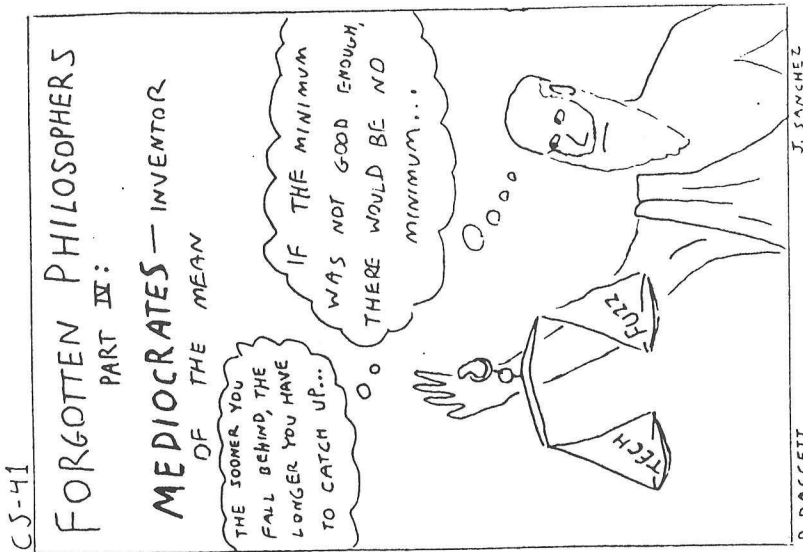 CS-41
FORGOTTEN PHILOSOPHERS
PART IV:
MEDIOCRATES — INVENTOR
OF THE MEAN
THE SOONER YOU
FALL BEHIND, THE
LONGER YOU HAVE
TO CATCH UP...
IF THE MINIMUM
WAS NOT GOOD ENOUGH,
THERE WOULD BE NO
MINIMUM...
TECH
FUZZ
J. SANCHEZ